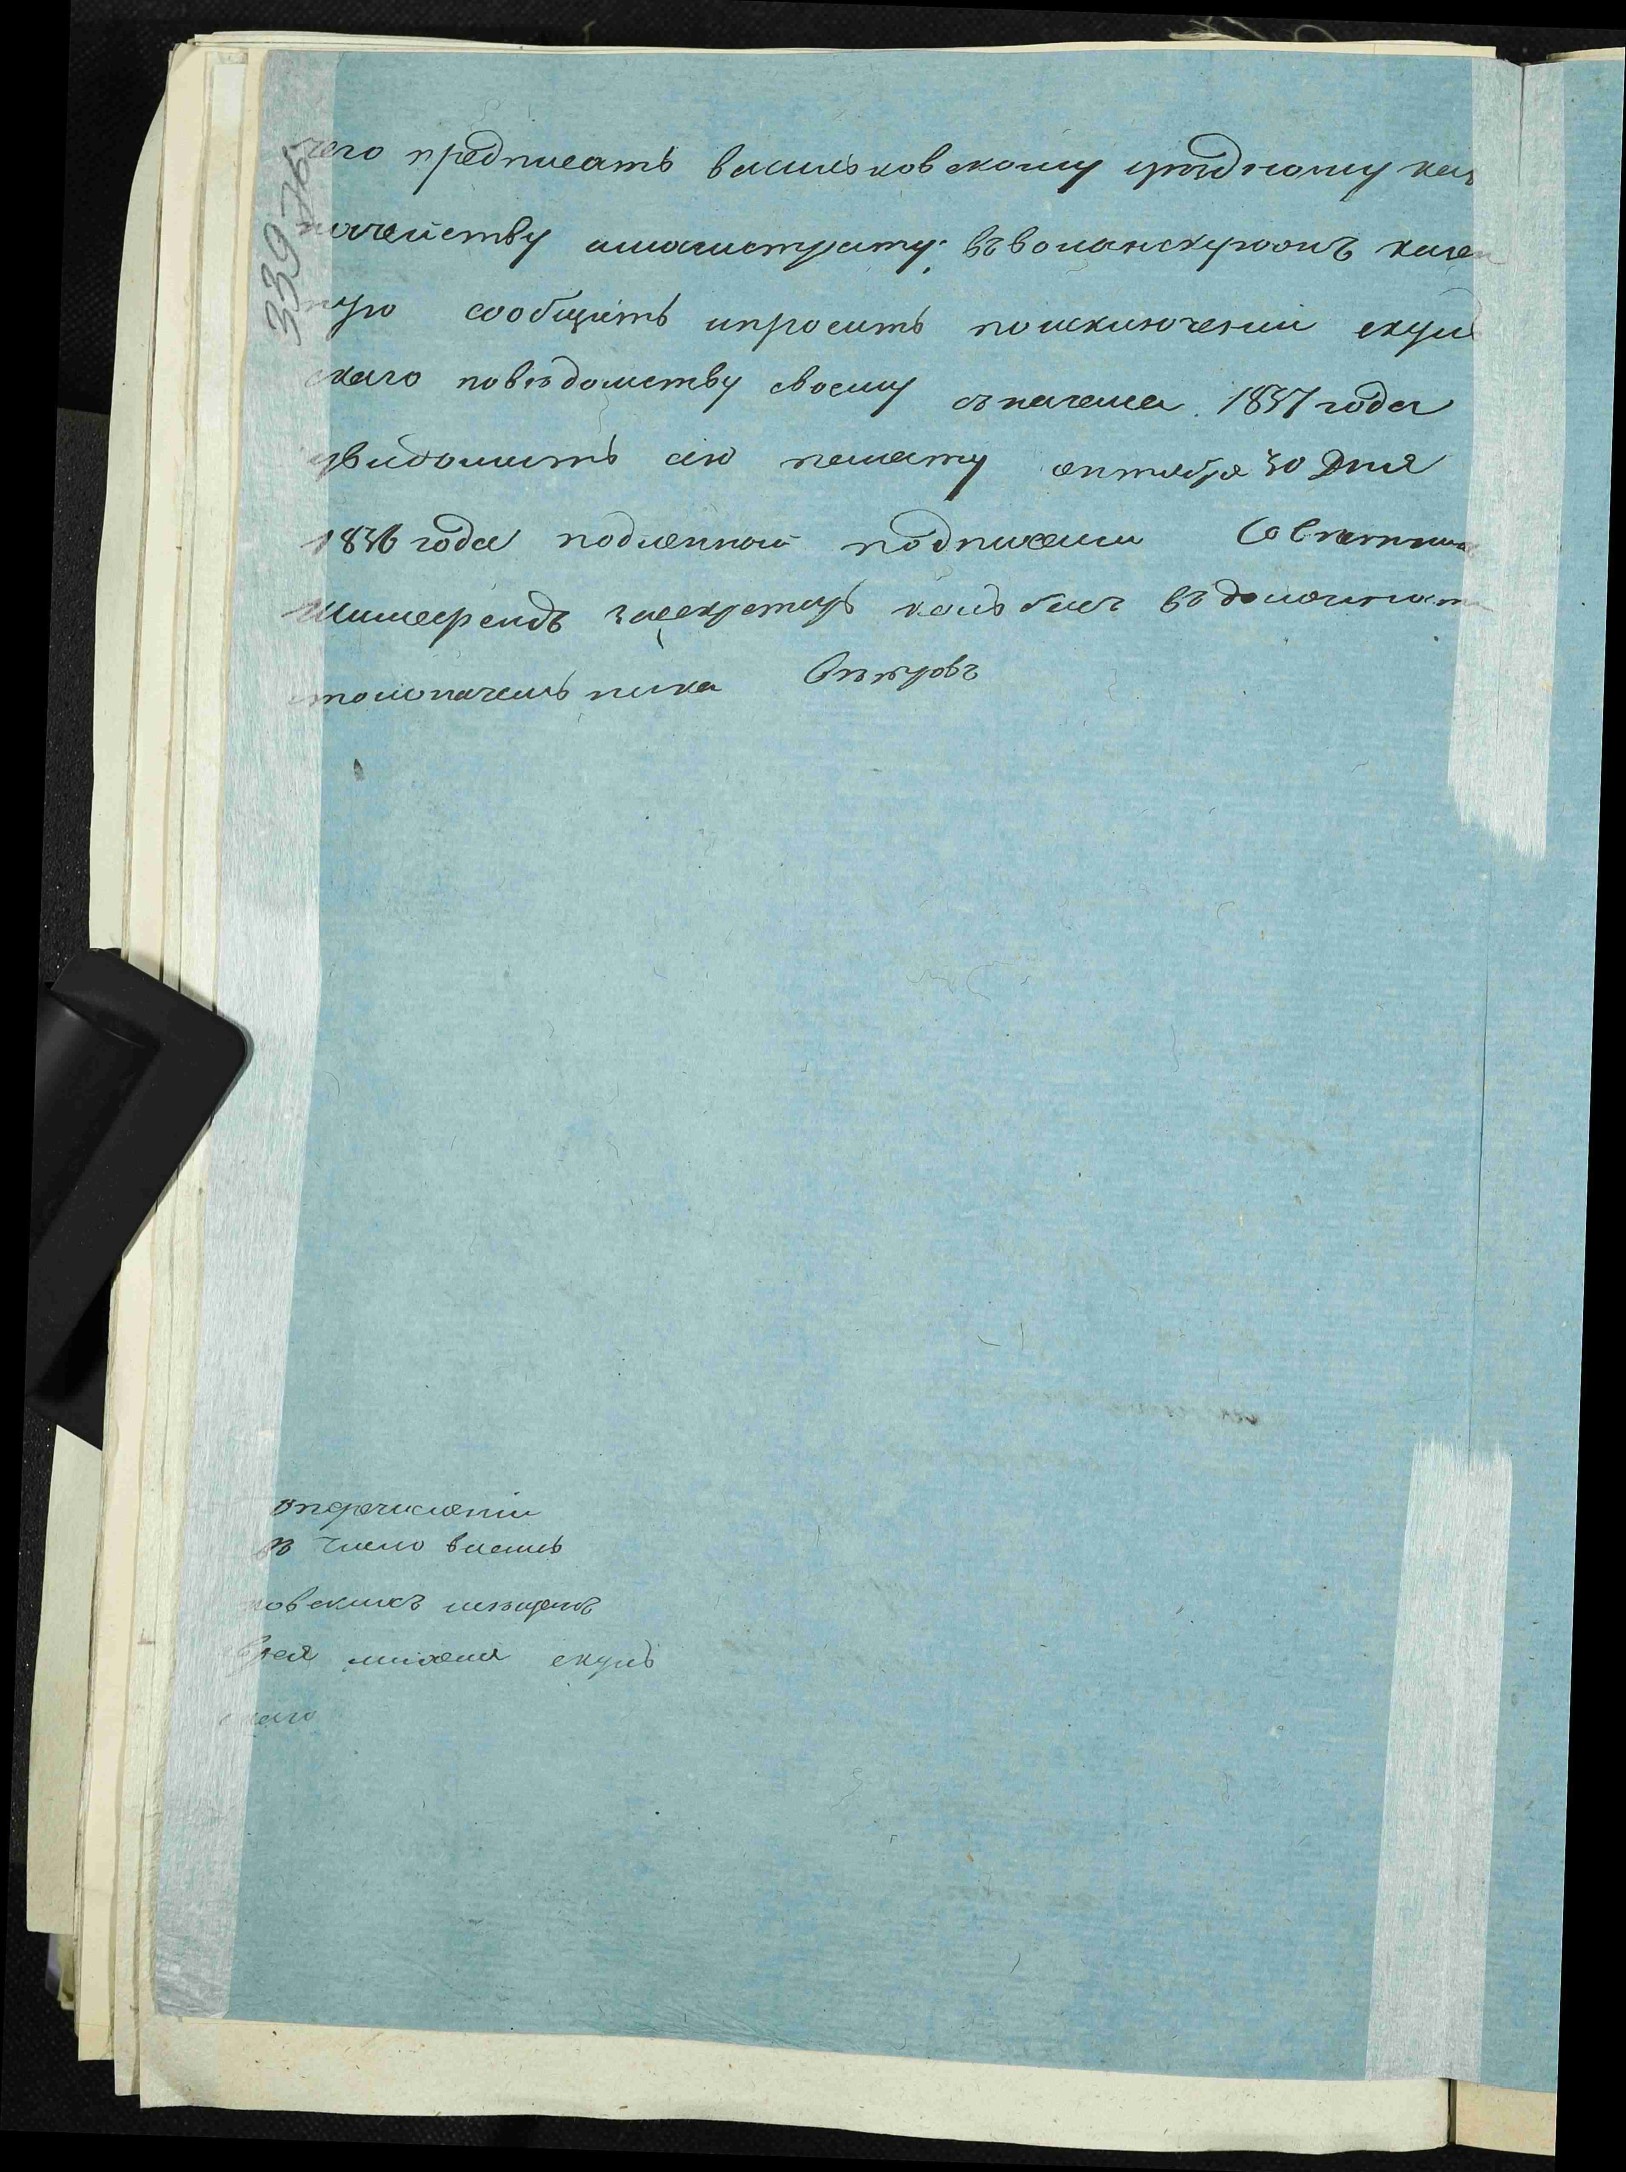 339 76
чего предписать васильковскому уѣздному каз
начейству имагистрату; въволынскуюжъ казен
ную сообщить ипросить поисключеніи скуль
скаго повѣдомству своему сначала 1837 года
увѣдомить сію палату октября 30 дня
1836 года подленной подписали Совѣтник
засекретаря въдолжности
столоначальника Петровъ
оперечисленіи
въ число василь
ковскихъ мѣщанъ
еврея скуль
скаго